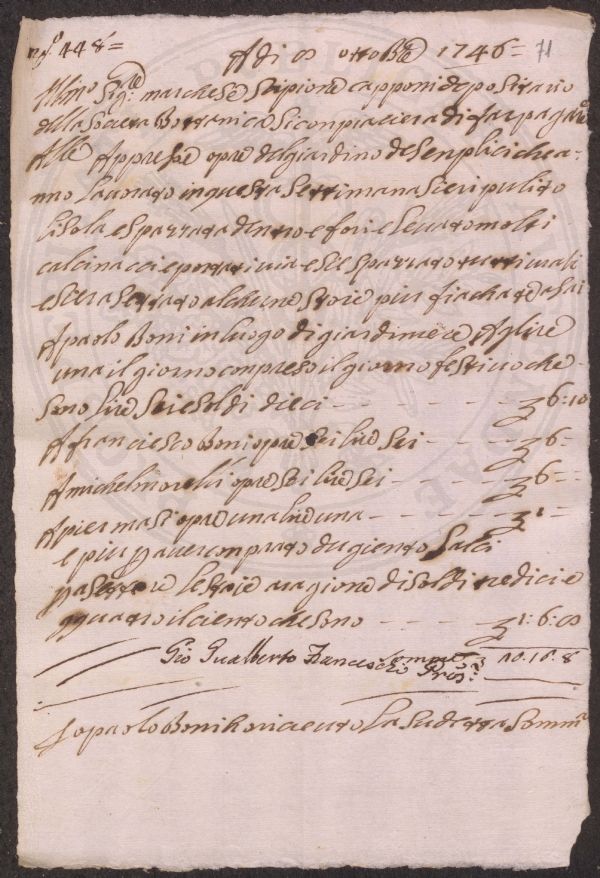 nº 448=
A di 8 ottobre 1746= 71
Illmo Sigre marchese Scipione capponi depositario
della Società Bottanica si conpiacierà di far pagare
Alle Appresse opre del giardino de Senplici che a-
nno Lavorato in questa Settimana si è ripulito
L'isola e spazzata dentro e fori e Levato molti
calcinacci e portati via e si è spazzato tutti i viali
e
A paolo Boni in luogo di giardiniere A Lire
una il giorno conpreso il giorno festivo che
Sono lire Sei e Soldi dieci - - - - - £ 6:10
A franciesco Boni opre Sei lire Sei - - - - £ 6=
A michel morelli opre Sei lire Sei - - - - £ 6==
A pier masi opre una lire una - - - - £ 1==
e più p aver conprato dugiento Salci
p le stoie a ragione di Soldi tredici e
quatro il ciento che Sono - - - - £ 1:6:8
Gio Gualberto Franceschi Provre Somma £ 20.16.8
Io paolo Boni ò riceuto La Sudetta Somma